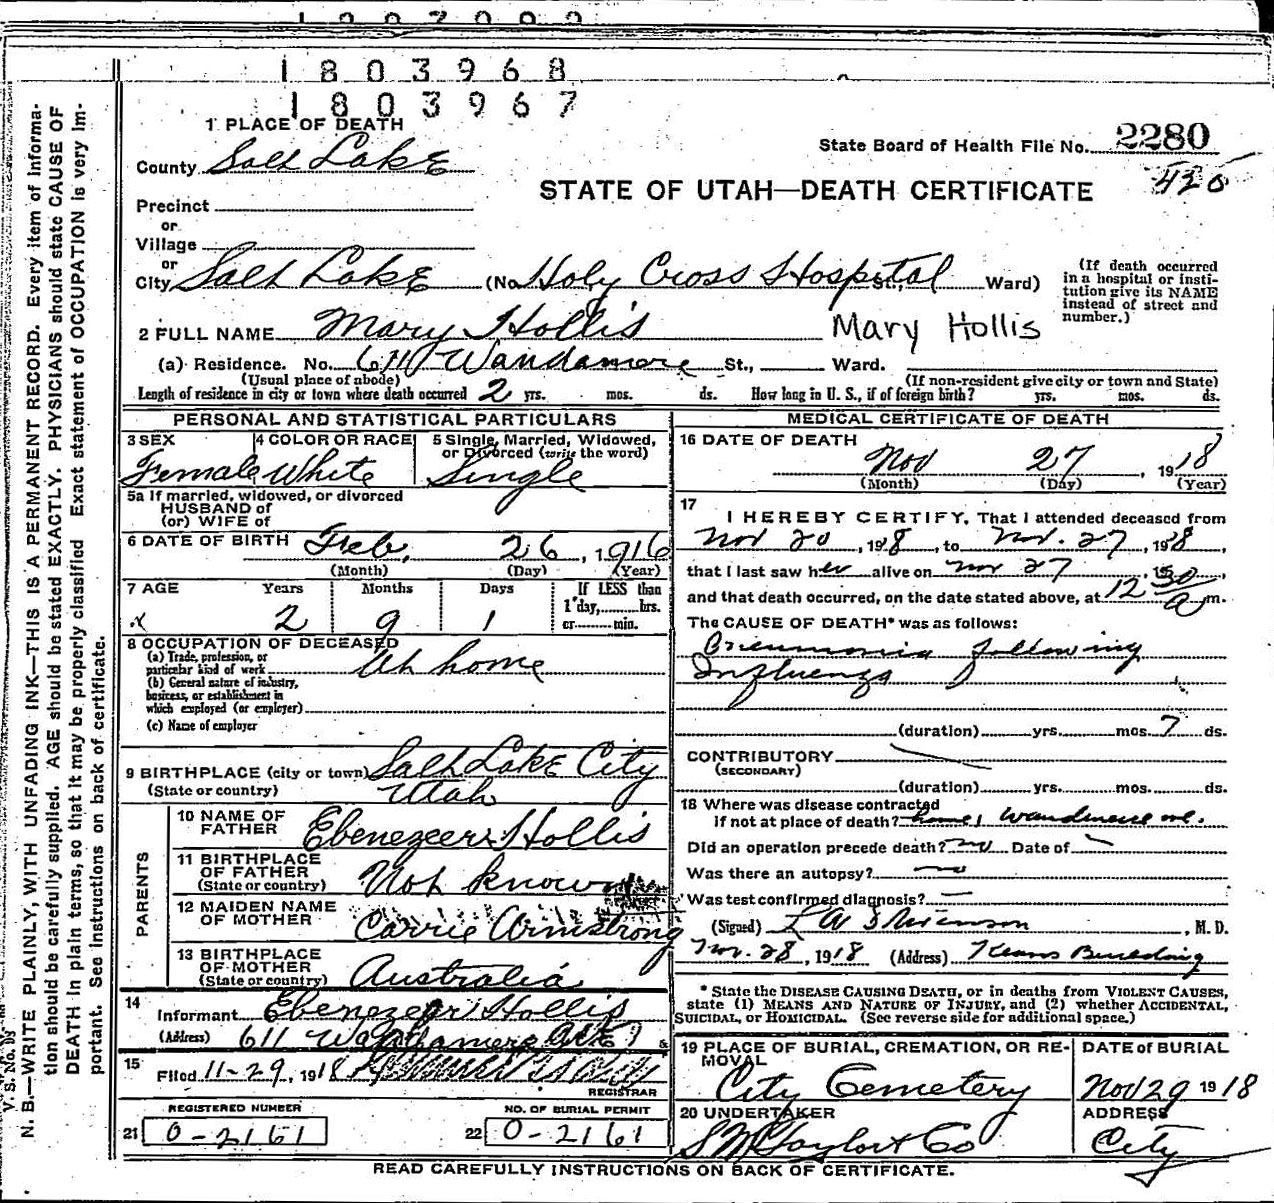 1803968
1803967
N. B.—WRITE PLAINLY, WITH UNFADING INK—THIS IS A PERMANENT RECORD. Every item of informa-
tion should be carefully supplied. AGE should be stated EXACTLY. PHYSICIANS should state CAUSE OF
DEATH in plain terms, so that it may be properly classified. Exact statement of OCCUPATION is very im-
portant. See instructions on back of certificate.
1 PLACE OF DEATH
County Salt Lake
State Board of Health File No. 2280
STATE OF UTAH—DEATH CERTIFICATE
Precinct
or
Village
or
City Salt Lake (No. Holy Cross Hospital St., Ward)
(If death occurred
in a hospital or insti-
tution give its NAME
instead of street and
number.)
2 FULL NAME Mary Hollis Mary Hollis
(a) Residence. No. 611 Wandamere St., Ward.
(Usual place of abode) (If non-resident give city or town and State)
Length of residence in city or town where death occurred 2 yrs. mos. ds. How long in U. S., if of foreign birth? yrs. mos. ds.
PERSONAL AND STATISTICAL PARTICULARS
3 SEX 4 COLOR OR RACE 5 Single, Married, Widowed,
or Divorced (write the word)
Female White Single
5a If married, widowed, or divorced
HUSBAND of
(or) WIFE of
6 DATE OF BIRTH Feb, 26, 1916
(Month) (Day) (Year)
7 AGE Years Months Days If LESS than
1 day, hrs.
or min.
2 9 1
8 OCCUPATION OF DECEASED
(a) Trade, profession, or
particular kind of work At home
(b) General nature of industry,
business, or establishment in
which employed (or employer)
(c) Name of employer
9 BIRTHPLACE (city or town) Salt Lake City
(State or country) Utah
PARENTS
10 NAME OF
FATHER Ebenezeer Hollis
11 BIRTHPLACE
OF FATHER
(State or country) Not known
12 MAIDEN NAME
OF MOTHER Carrie Armstrong
13 BIRTHPLACE
OF MOTHER
(State or country) Australia
14 Informant Ebenezer Hollis
(Address) 611 Wandamere Ave
15 Filed 11-29, 1918
REGISTRAR
REGISTERED NUMBER NO. OF BURIAL PERMIT
21 0-2161 22 0-2161
MEDICAL CERTIFICATE OF DEATH
16 DATE OF DEATH
Nov 27, 1918
(Month) (Day) (Year)
17 I HEREBY CERTIFY, That I attended deceased from
Nov 20, 1918, to Nov. 27, 1918,
that I last saw her alive on Nov 27
and that death occurred, on the date stated above, at 12 30 a m.
The CAUSE OF DEATH* was as follows:
Pneumonia following
Influenza
(duration) yrs. mos. 7 ds.
CONTRIBUTORY
(SECONDARY)
(duration) yrs. mos. ds.
18 Where was disease contracted
if not at place of death? home, Wandamere ave.
Did an operation precede death? no Date of
Was there an autopsy? no
Was test confirmed diagnosis?
(Signed) , M. D.
Nov. 28, 1918 (Address) Kearns Building
* State the DISEASE CAUSING DEATH, or in deaths from VIOLENT CAUSES,
state (1) MEANS AND NATURE OF INJURY, and (2) whether ACCIDENTAL,
SUICIDAL, or HOMICIDAL. (See reverse side for additional space.)
19 PLACE OF BURIAL, CREMATION, OR RE-
MOVAL
City Cemetery
DATE of BURIAL
Nov 29 1918
20 UNDERTAKER
S M Taylor & Co
ADDRESS
City
READ CAREFULLY INSTRUCTIONS ON BACK OF CERTIFICATE.